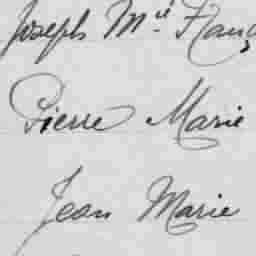 Joseph M.ie
Pierre Marie
Jean Marie